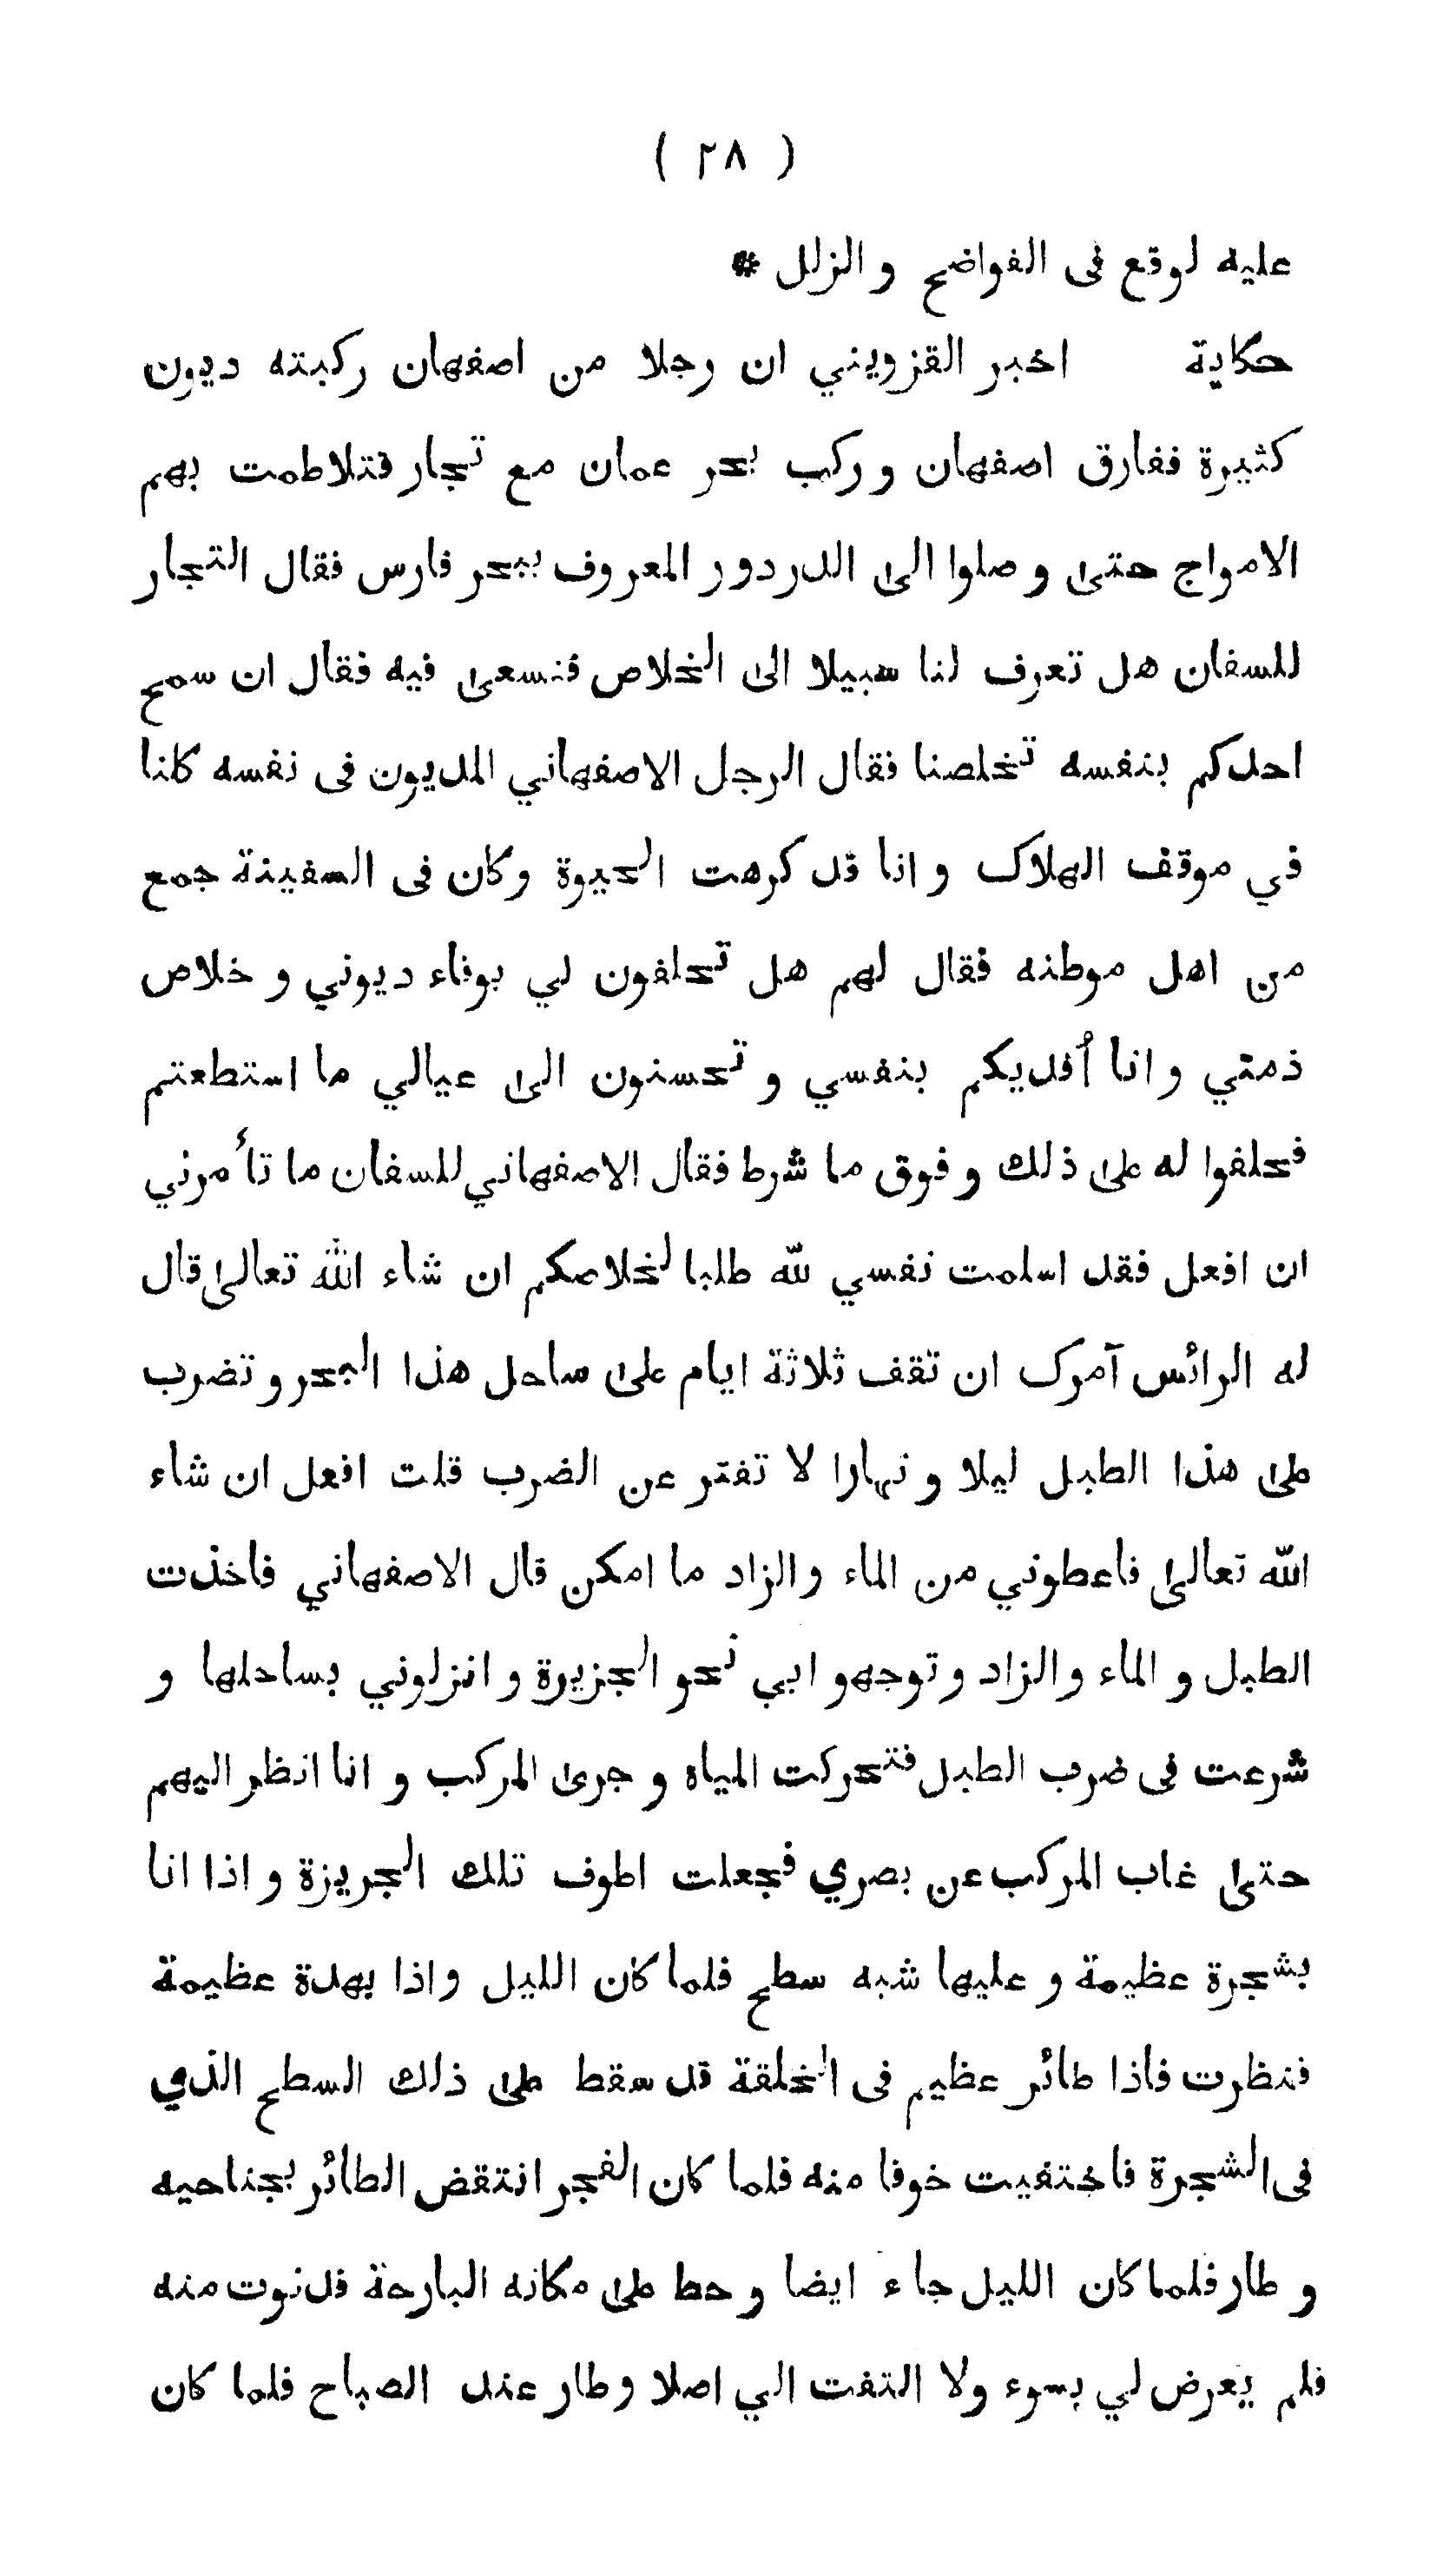 ( ٢٨ )
عليه لوقع فى الفواضح و الزلل *
حكاية اخبر القزويني ان رجلا من اصفهان ركبته ديون
كثيرة ففارق اصفهان و ركب بحر عمان مع تجار فتلاطمت بهم
الامواج حتى و صلوا الى الدردور المعروف ببحر فارس فقال التجار
للسفان هل تعرف لنا سبيلا الى الخلاص فنسعى فيه فقال ان سمح
احدكم بنفسه تخلصنا فقال الرجل الاصفهاني المديون فى نفسه كلنا
في موقف الهلاك و انا قد كرهت الحيوة و كان فى السفينة جمع
من اهل موطنه فقال لهم هل تحلفون لي بوفاء ديوني و خلاص
ذمتي و انا أفديكم بنفسي و تحسنون الى عيالي ما استطعتم
فحلفوا له على ذلك و فوق ما شرط فقال الاصفهاني للسفان ما تأمرني
ان افعل فقد اسلمت نفسي لله طلبا لخلاصكم ان شاء الله تعالى قال
له الرائس آمرك ان تقف ثلاثة ايام على ساحل هذا البحر و تضرب
على هذا الطبل ليلا و نهارا لا تفتر عن الضرب قلت افعل ان شاء
الله تعالى فاعطوني من الماء و الزاد ما امكن قال الاصفهاني فاخذت
الطبل و الماء و الزاد و توجهو ابي نحو الجزيرة و انزلوني بساحلها و
شرعت فى ضرب الطبل فتحركت المياه و جرى المركب و انا انظر اليهم
حتى غاب المركب عن بصري فجعلت اطوف تلك الجريزة و اذا انا
بشجرة عظيمة و عليها شبه سطح فلما كان الليل و اذا بهدة عظيمة
فنظرت فاذا طائر عظيم فى الخلقة قد سقط على ذلك السطح الذي
فى الشجرة فاختفيت خوفا منه فلما كان الفجر انتقض الطائر بجناحيه
و طار فلما كان الليل جاء ايضا و حط على مكانه البارحة فدنوت منه
فلم يعرض لي بسوء ولا التفت الي اصلا و طار عند الصباح فلما كان